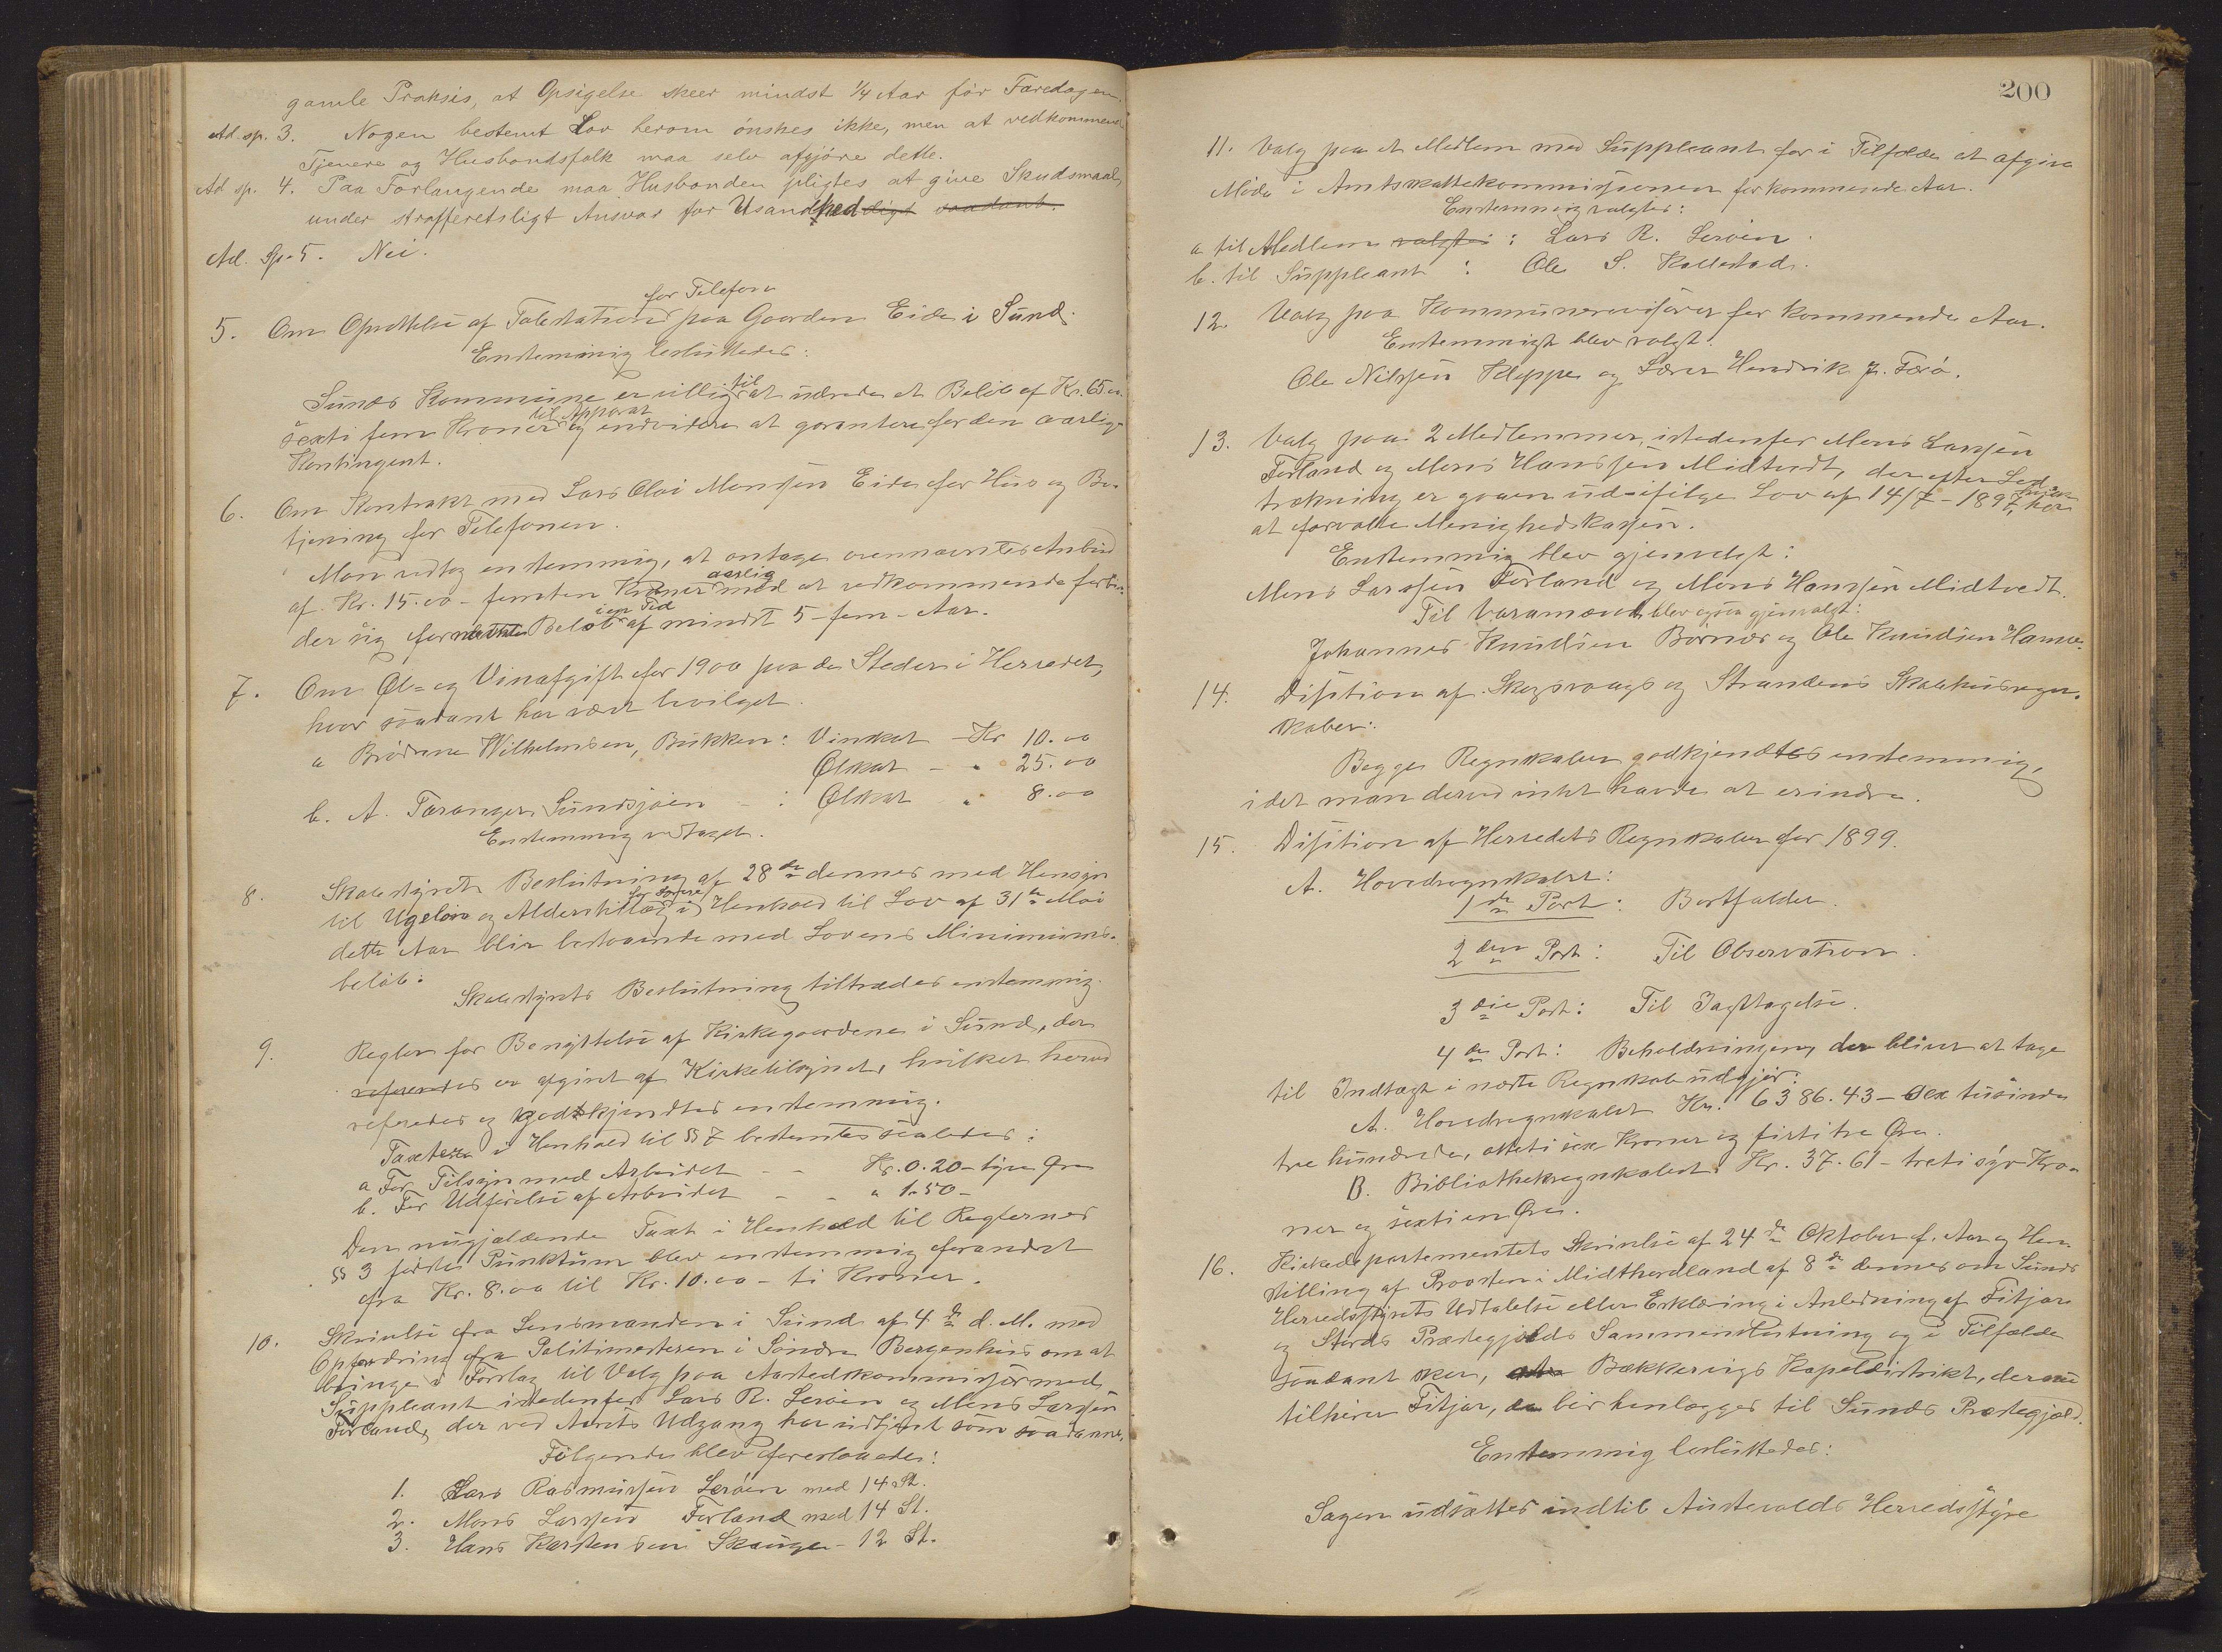 gamle Praksis, at Opsigelse skeer mindst 1/4 Aar før Faredagen.
Ad. sp. 3. Nogen bestemt Lov herom ønskes ikke, men at vedkommende
Tjenere og Husbondsfolk maa selv afgjøre dette.
Ad sp. 4. Paa Forlangende maa Husbonden pligtes at give Skudsmaal,
under strafferetsligt Ansvar for Usandhed
Ad. Sp. 5. Nei.
for Telefon
5. Om Oprettelse af Talestation paa Gaarden Eide i Sund.
Enstemmig besluttedes:
til
Sunds Kommune er villig at udrede et Beløb af Kr. 65.00
til Apparat
sexti fem Kroner og endvidere at garantere for den aarlige
Kontingent.
6. Om Kontrakt med Lars Olai Monssen Eide for Hus og Be-
tjening for Telefonen.
Man vedtog enstemmig, at antage ovennævntes Anbud
aarlig
af Kr. 15.00 - femten Kroner med at vedkommende forbin-
i en Tid
der sig for Beløb af mindst 5 - fem - Aar.
7. Om Øl- og Vinafgift for 1900 paa de Steder i Herredet,
hvor saadant har vært bevilget.
a Brødrene Wilhelmsen, Bukken: Vinskat - Kr 10.00
Ølskat - " 25.00
b. A. Taranger, Sundsjøen - : Ølskat " 8.00
Enstemmig vedtaget.
8. Skolestyrets Beslutning af 28de dennes med Hensyn
for Lærere
til Ugeløn og Alderstillæg i Henhold til Lov af 31te Mai
dette Aar blir bestaaende med Lovens Minimums-
beløb.
Skolestyrets Beslutning tiltrædes enstemmig.
9. Regler for Benyttelse af Kirkegaardene i Sund, der
er afgivet af Kirketilsynet, hvilket herved
refereredes og godkjendtes enstemmig.
Taxten i Henhold til § 7 bestemtes saaledes:
a For Tilsyn med Arbeidet - - Kr. 0.20 - tyve Øre
b. For Udførelse af Arbeidet - - " 1.50 -
Den nugjældende Taxt i Henhold til Reglernes
§ 3 første Punktum blev enstemmig forandret
fra Kr. 8.00 til Kr. 10.00 - ti Kroner.
10. Skrivelse fra Lensmanden i Sund af 4de d. M. med
Opfordring fra Politimesteren i Søndre Bergenhus om at
bringe i Forslag til Valg paa Aastedskommissær med
Suppleant istedenfor Lars R. Lerøen og Mons Larssen
Forland, der ved Aarets Udgang har udtjent som saadanne.
Følgende blev foreslaaedes:
1. Lars Rasmussen Lerøen med 14 St.
2. Mons Larssen Forland med 14 St.
3. Hans Karstensen Skauge - 12 St.
200
11. Valg paa et Medlem med Suppleant for i Tilfælde at afgive
Møde i Amtskattekommissionen for kommende Aar.
Enstemmig valgtes:
a til Medlem valgtes: Lars R. Lerøen.
b. til Suppleant : Ole S. Kallestad.
12. Valg paa Kommunerevisorer for kommende Aar.
Enstemmigt blev valgt:
Ole Nilssen Kleppe og Lærer Hendrik J. Færø.
13. Valg paa 2 Medlemmer, istedenfor Mons Larssen
Forland og Mons Hanssen Midtvedt, der efter Lod-
trækning er gaaen ud - ifølge Lov af 14/7 - 1897,
at forvalte Menighedskassen.
Enstemmig blev gjenvalgt:
Mons Larssen Forland og Mons Hanssen Midtvedt.
Til Varamænd blev ogsaa gjenvalgt:
Johannes Knudsen Børnes og Ole Knudsen Hamre.
14. Disition af Skogsvaags og Strandens Skolehusregn-
skaber:
Begge Regnskaber godkjendtes enstemmig,
idet man derved intet havde at erindre.
15. Disition af Herredets Regnskaber for 1899.
A. Hovedregnskabet:
1ste Post: Bortfalder.
2den Post: Til Observation.
3die Post: Til Iagttagelse.
4de Post: Beholdningen, der bliver at tage
til Indtægt i næste Regnskab udgjør:
A. Hovedregnskabet Kr. 6386.43 - sex tusinde
tre hundrede, otteti sex Kroner og firti tre Øre.
B. Bibliothekregnskabet: Kr. 37.61 - treti syv Kro-
ner og sexti en Øre.
16. Kirkedepartementets Skrivelse af 24de Oktober f. Aar og Hen-
stilling af Provsten i Midthordland af 8de dennes om Sunds
Herredsstyrets Udtalelse eller Erklæring i Anledning af Fitjar
og Stords Præstegjælds Sammenslutning og i Tilfælde
saadant sker, Bækkervigs Kapeldistrikt, der nu
tilhører Fitjar, da bør henlægges til Sunds Præstegjæld.
Enstemmig besluttedes:
Sagen udsættes indtil Austevolds Herredsstyre